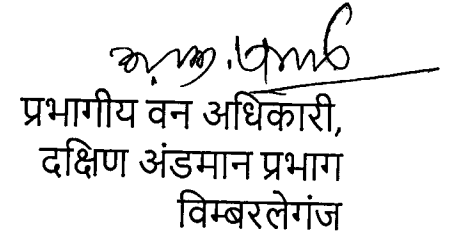 प्रभागीय वन अधिकारी,
दक्षिण अंडमान प्रभाग
विम्बरलेगंज